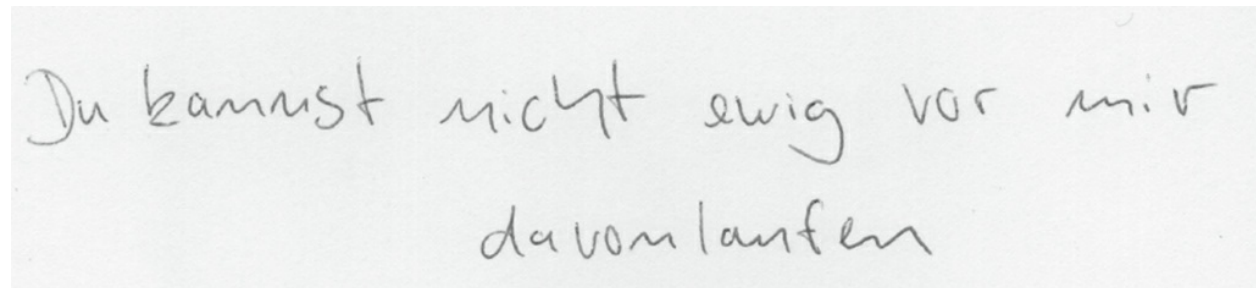 Du kannst nicht ewig vor mir
davonlaufen